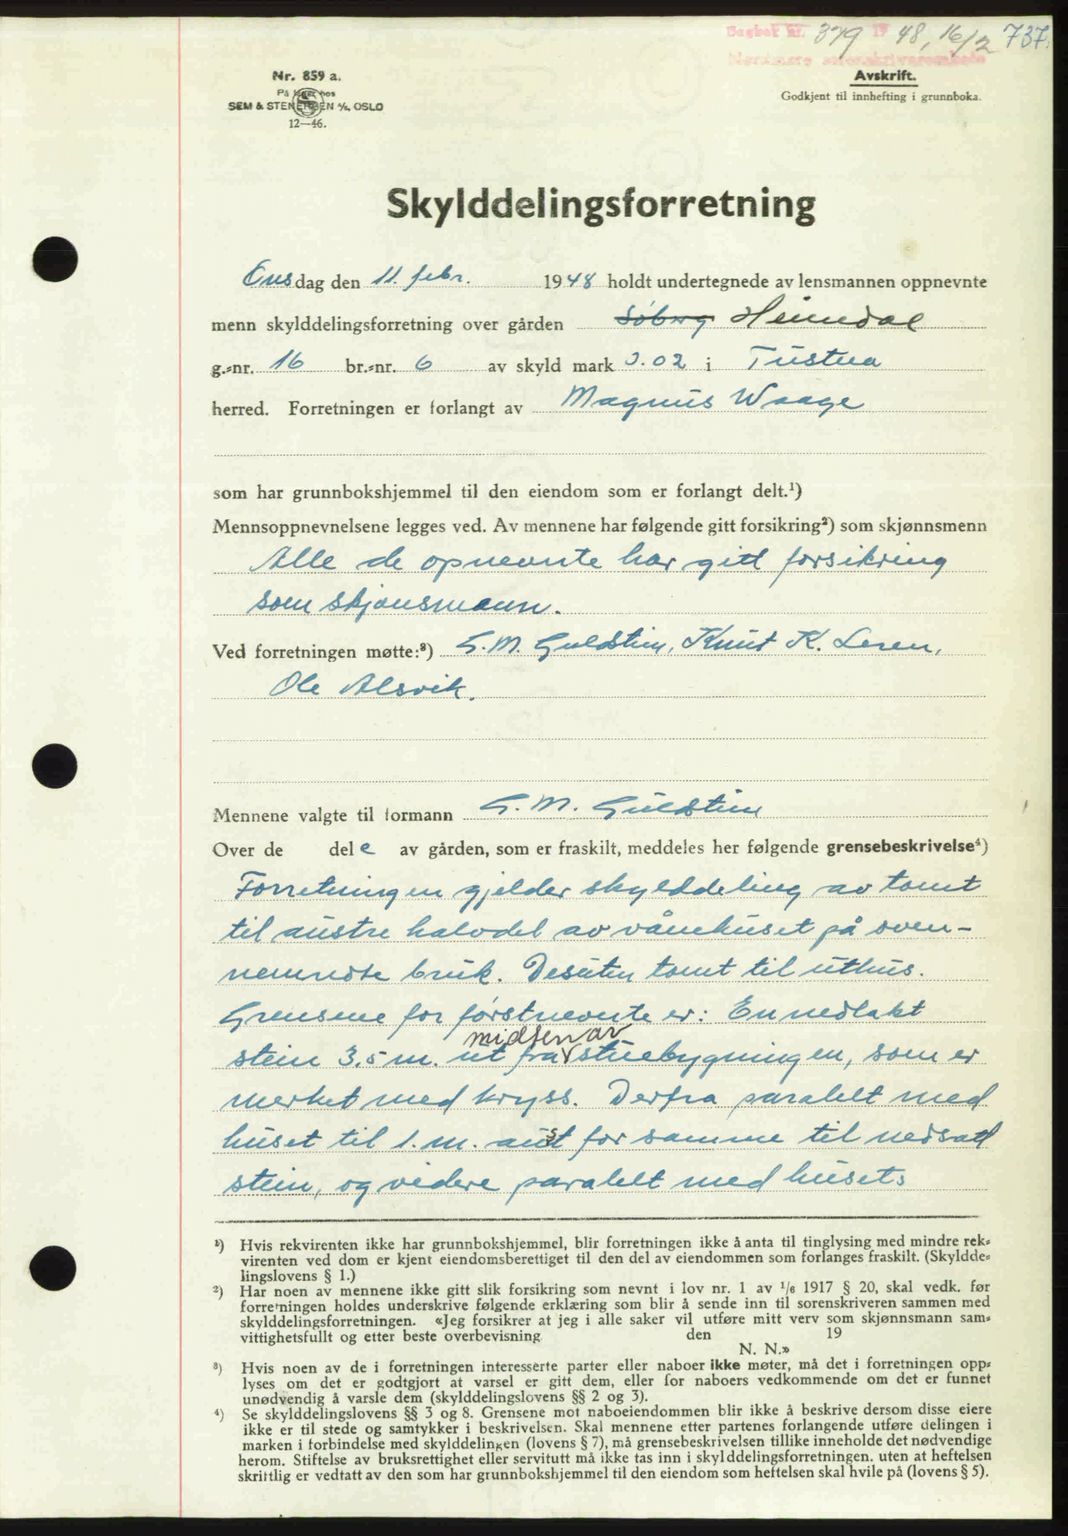 Dagbok nr. 379 19 48, 16/2 737.
Nordmøre sorenskriverembede
Nr. 859 a.
På lager hos
SEM & STENERSEN A/S, OSLO
12—46.
Avskrift.
Godkjent til innhefting i grunnboka.
Skylddelingsforretning
Onsdag den 11. febr. 1948 holdt undertegnede av lensmannen oppnevnte
menn skylddelingsforretning over gården Söberg Heimdal
g.-nr. 16 br.-nr. 6 av skyld mark 3.02 i Tustna
herred. Forretningen er forlangt av Magnus Waage
som har grunnbokshjemmel til den eiendom som er forlangt delt.¹)
Mennsoppnevnelsene legges ved. Av mennene har følgende gitt forsikring²) som skjønnsmenn
Alle de opnevnte har gitt forsikring
som skjønsmann.
Ved forretningen møtte:³) G. M. Guldstein, Knut K. Leren,
Ole Alsvik.
Mennene valgte til formann G. M. Guldstein
Over de dele av gården, som er fraskilt, meddeles her følgende grensebeskrivelse⁴)
Forretningen gjelder skylddeling av tomt
til austre halvdel av vånehuset på oven-
nemndte bruk. Desuten tomt til uthus.
Grensene for förstnevnte er: En nedlakt
midtenav
stein 3.5 m. ut fra stuebygningen, som er
merket med kryss. Derfra paralelt med
huset til 1. m. aust for samme til nedsatt
stein, og videre paralelt med husets
¹) Hvis rekvirenten ikke har grunnbokshjemmel, blir forretningen ikke å anta til tinglysing med mindre rek-
virenten ved dom er kjent eiendomsberettiget til den del av eiendommen som forlanges fraskilt. (Skyldde-
lingslovens § 1.)
²) Har noen av mennene ikke gitt slik forsikring som nevnt i lov nr. 1 av 1/6 1917 § 20, skal vedk. før
forretningen holdes underskrive følgende erklæring som blir å sende inn til sorenskriveren sammen med
skylddelingsforretningen. «Jeg forsikrer at jeg i alle saker vil utføre mitt verv som skjønnsmann sam-
vittighetsfullt og etter beste overbevisning den 19
N. N.»
³) Hvis noen av de i forretningen interesserte parter eller naboer ikke møter, må det i forretningen opp-
lyses om det er godtgjort at varsel er gitt dem, eller for naboers vedkommende om det er funnet
unødvendig å varsle dem (skylddelingslovens §§ 2 og 3).
⁴) Se skylddelingslovens §§ 3 og 8. Grensene mot naboeiendommen blir ikke å beskrive dersom disse eiere
ikke er til stede og samtykker i beskrivelsen. Skal mennene etter partenes forlangende utføre delingen i
marken i forbindelse med skylddelingen (lovens § 7), må grensebeskrivelsen tillike inneholde det nødvendige
herom. Stiftelse av bruksrettighet eller servitutt må ikke tas inn i skylddelingsforretningen. uten at heftelsen
skriftlig er vedtatt av den som har grunnbokshjemmel til den eiendom som heftelsen skal hvile på (lovens § 5).